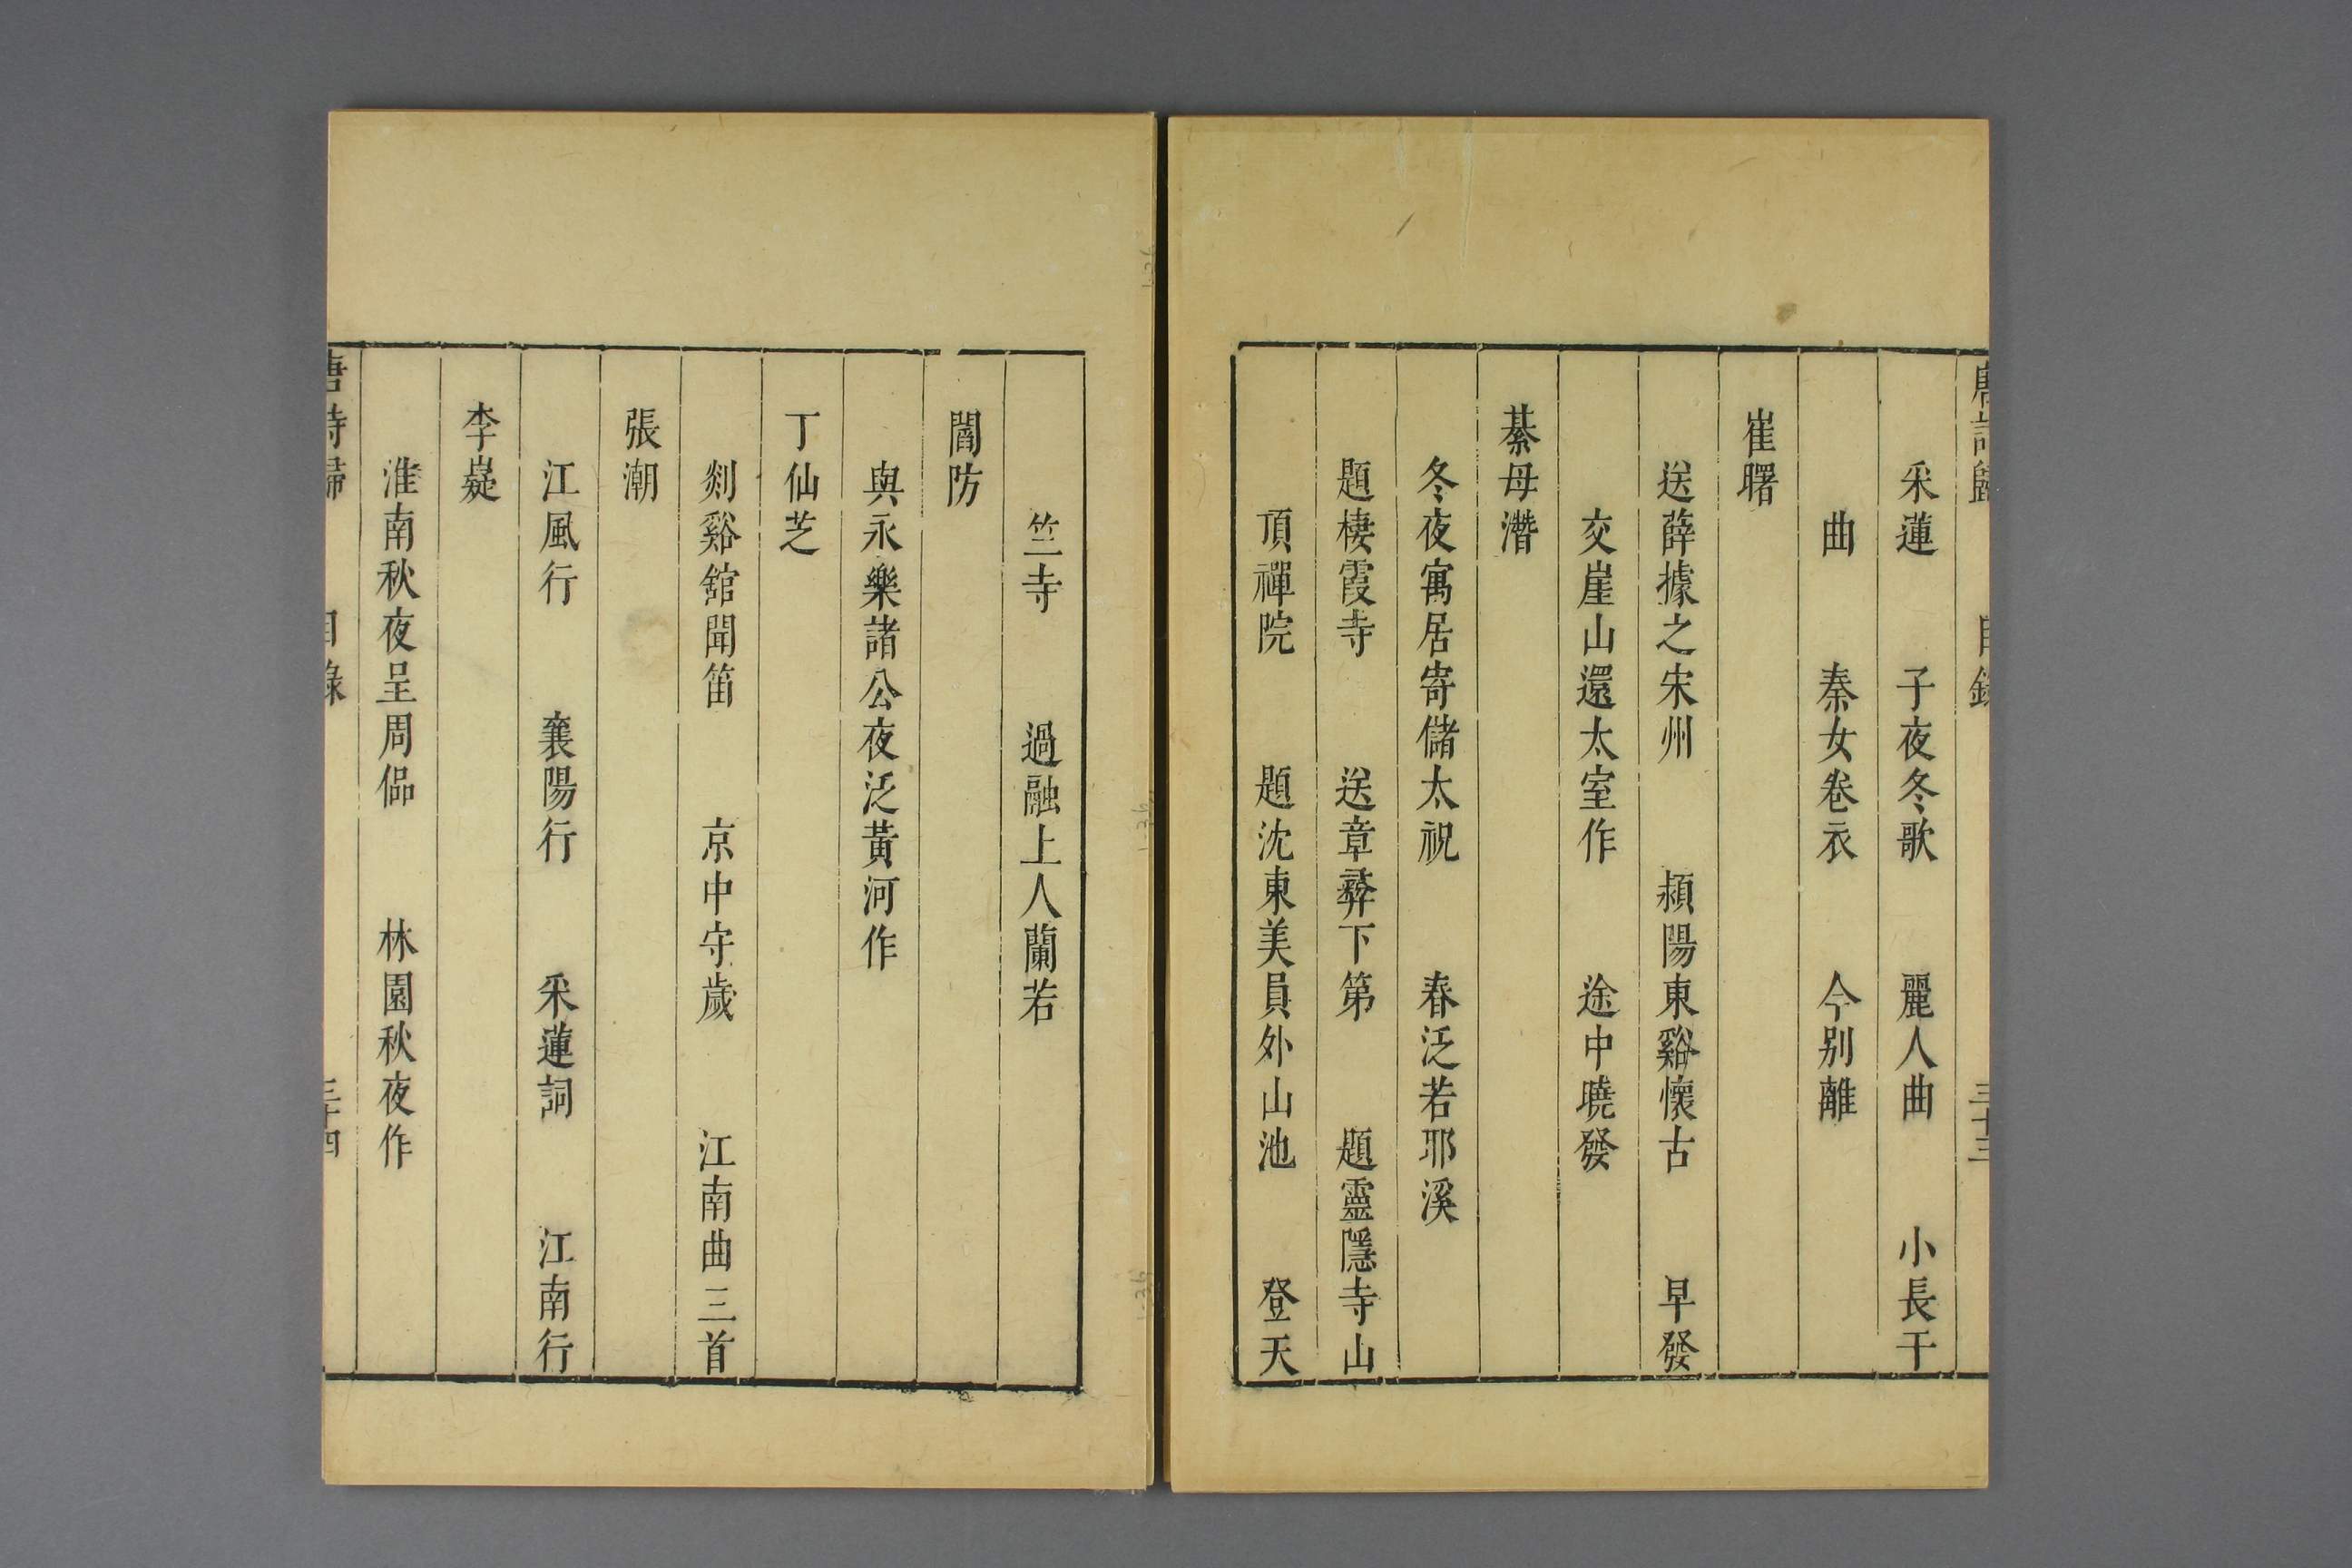 唐詩歸 目錄 三十三
采蓮 子夜冬歌 麗人曲 小長干
曲 秦女卷衣 今别離
崔曙
送薛據之宋州 潁陽東谿懷古 早發
交崖山還太室作 途中曉發
綦毋潛
冬夜寓居寄儲太祝 春泛若耶溪
題棲霞寺 送章彝下第 題靈隱寺山
頂禪院 題沈東美員外山池 登天
竺寺 過融上人蘭若
閻防
與永樂諸公夜泛黃河作
丁仙芝
剡谿舘聞笛 京中守歲 江南曲三首
張潮
江風行 襄陽行 采蓮詞 江南行
李嶷
淮南秋夜呈周侶 林園秋夜作
唐詩歸 目錄 三十四